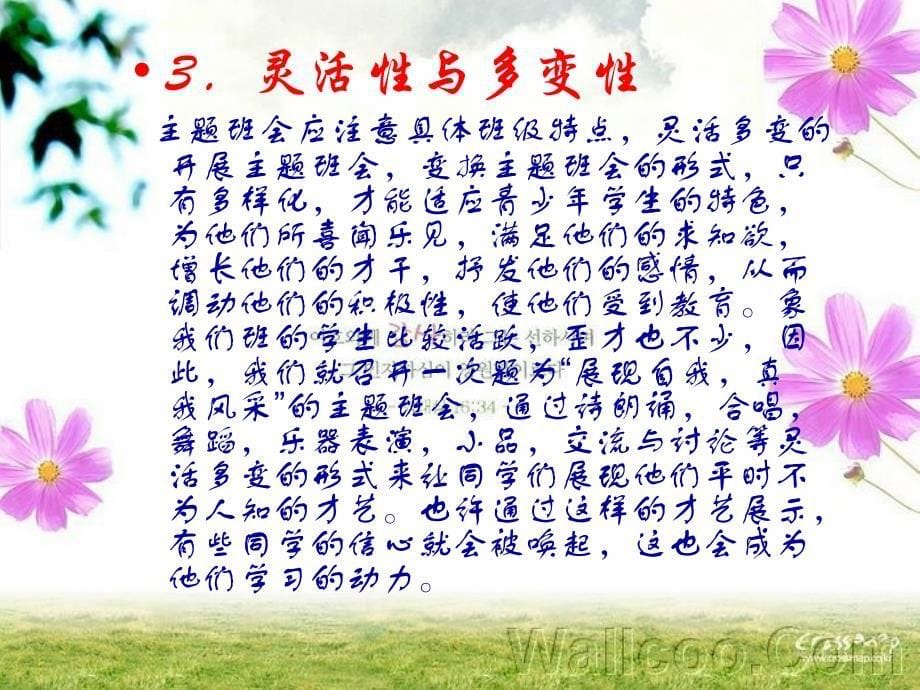 • 3. 灵活性与多变性
主题班会应注意具体班级特点，灵活多变的
开展主题班会，变换主题班会的形式，只
有多样化，才能适应青少年学生的特色，
为他们所喜闻乐见，满足他们的求知欲，
增长他们的才干，抒发他们的感情，从而
调动他们的积极性，使他们受到教育。象
我们班的学生比较活跃，歪才也不少，因
此，我们就召开一次题为“展现自我，真
我风采”的主题班会，通过诗朗诵，合唱，
舞蹈，乐器表演，小品，交流与讨论等灵
活多变的形式来让同学们展现他们平时不
为人知的才艺。也许通过这样的才艺展示，
有些同学的信心就会被唤起，这也会成为
他们学习的动力。
16:34
Wallcoo.Com
crossmap
www.crossmap.co.kr